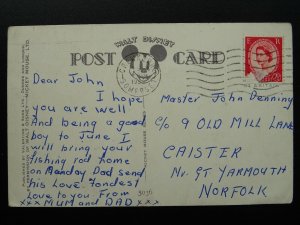 WALT DISNEY
POST CARD
Dear John
I hope
you are well
And being a good
boy to June I
will bring your
fishing rod home
on Monday Dad send
his Love. Fondest
Love to you. From
xxx MUM and DAD xxx
3036
Master John Denning
C/o 9 OLD MILL LANE
CAISTER
Nr. GT YARMOUTH
NORFOLK